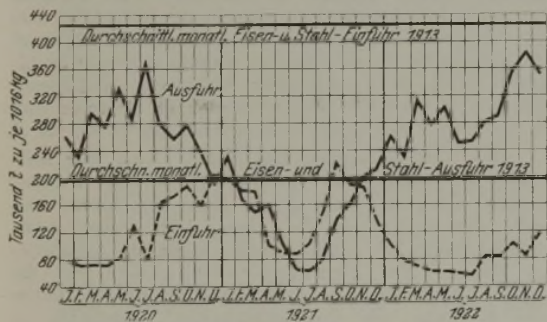 440
400
360
320
280
240
200
160
120
80
40
Tausend t zu je 1016 kg
Durchschnittl. monatl. Eisen- u. Stahl-Einfuhr 1913
Ausfuhr
Durchschn. monatl. Eisen- und Stahl-Ausfuhr 1913
Einfuhr
J. F. M. A. M. J. J. A. S. O. N. D. J. F. M. A. M. J. J. A. S. O. N. D. J. F. M. A. M. J. J. A. S. O. N. D.
1920 1921 1922